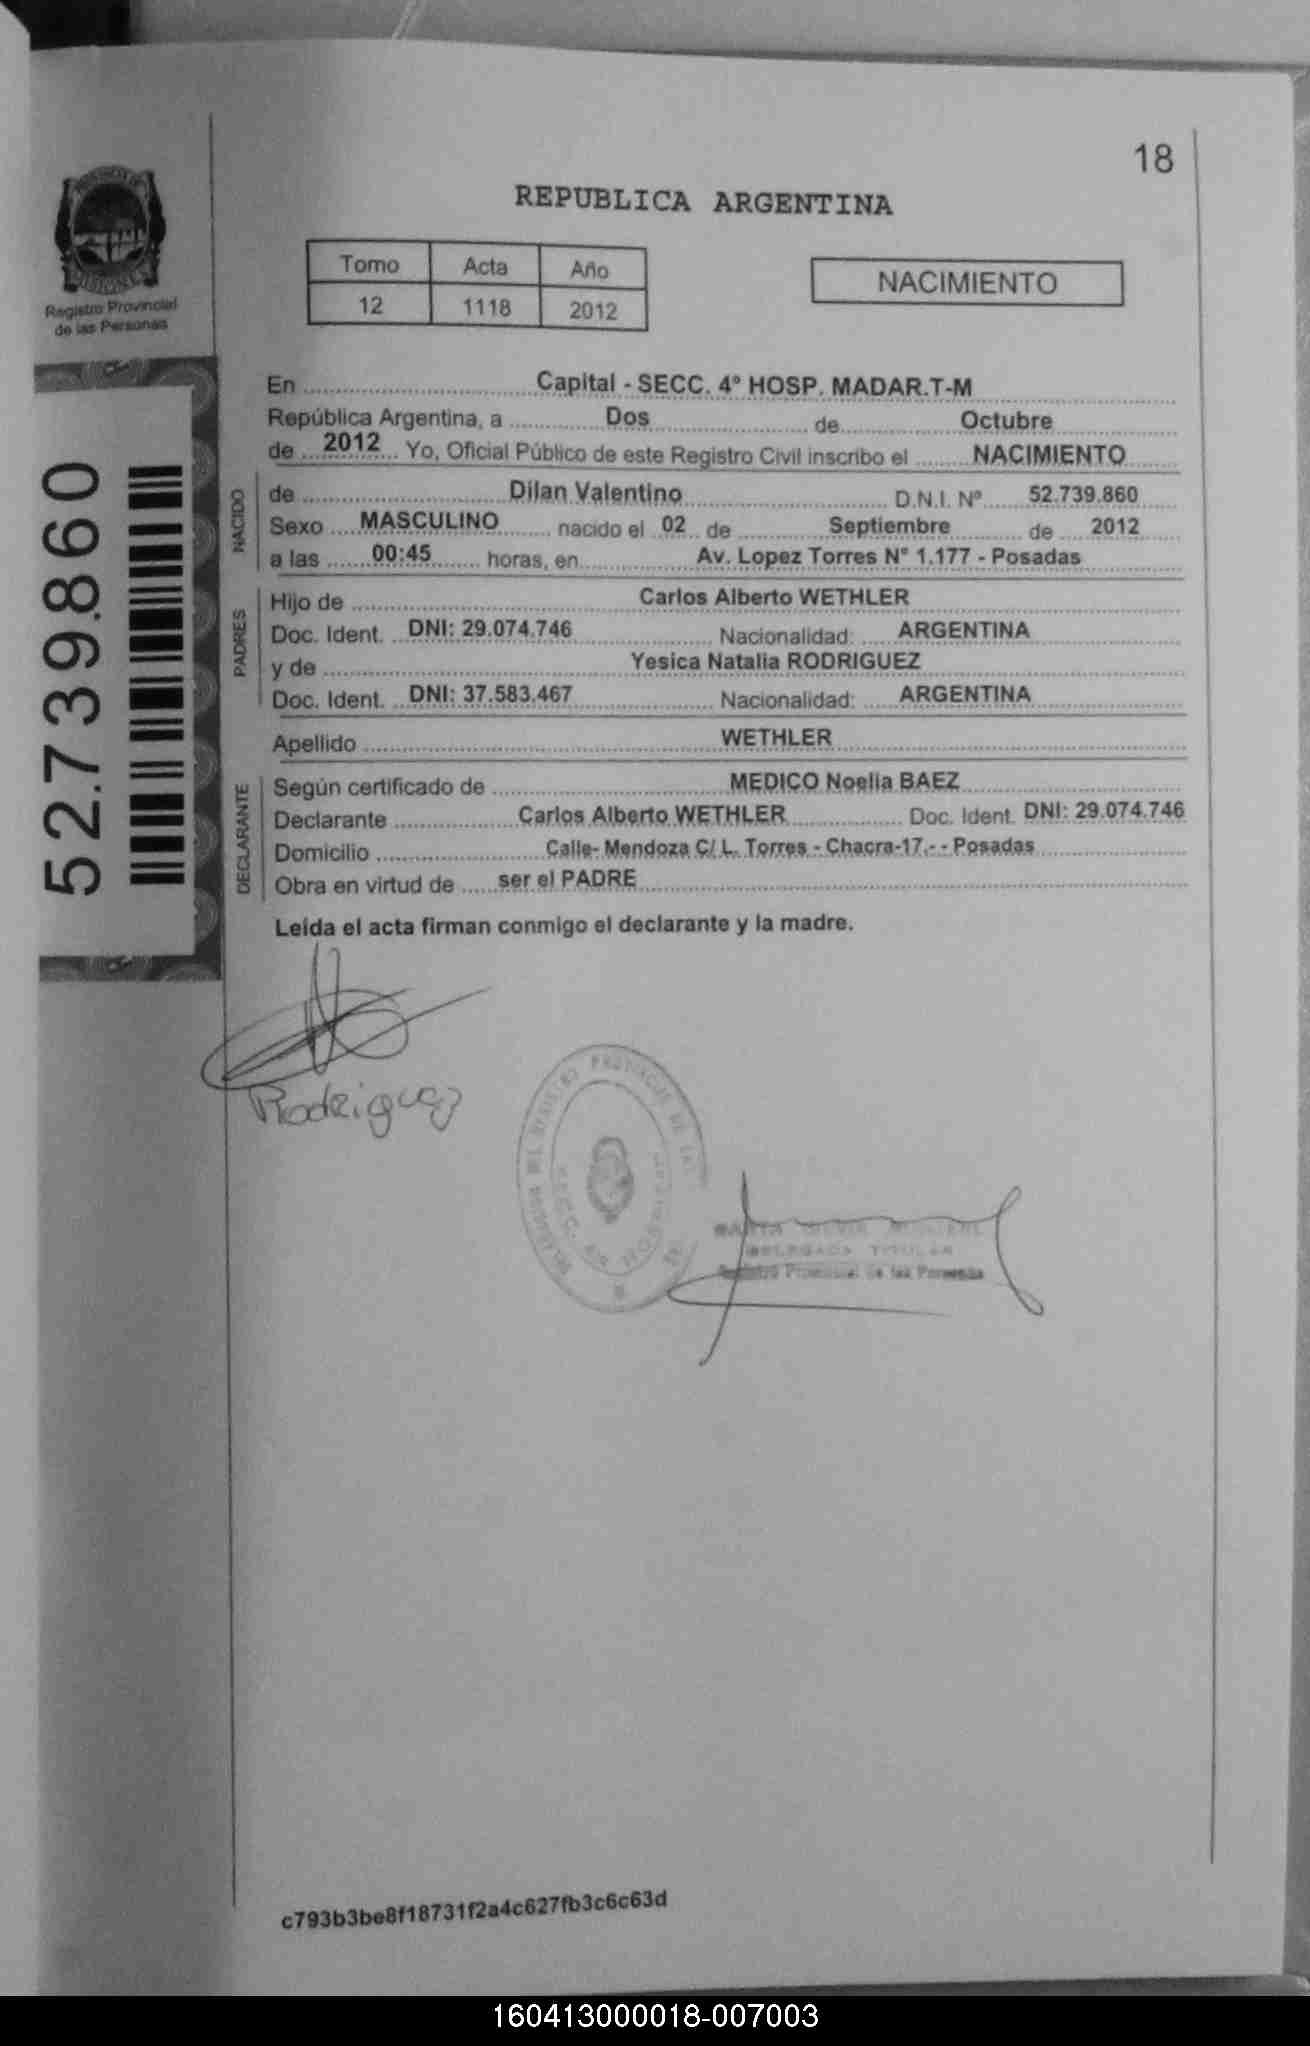 18
REPUBLICA ARGENTINA
Registro Provincial
de las Personas
Tomo Acta Año
12 1118 2012
NACIMIENTO
52.739.860
En Capital - SECC. 4° HOSP. MADAR.T-M
República Argentina, a Dos de Octubre
de 2012 Yo, Oficial Público de este Registro Civil inscribo el NACIMIENTO
NACIDO
de Dilan Valentino D.N.I. Nº 52.739.860
Sexo MASCULINO nacido el 02 de Septiembre de 2012
a las 00:45 horas, en Av. Lopez Torres N° 1.177 - Posadas
PADRES
Hijo de Carlos Alberto WETHLER
Doc. Ident. DNI: 29.074.746 Nacionalidad: ARGENTINA
y de Yesica Natalia RODRIGUEZ
Doc. Ident. DNI: 37.583.467 Nacionalidad: ARGENTINA
Apellido WETHLER
DECLARANTE
Según certificado de MEDICO Noelia BAEZ
Declarante Carlos Alberto WETHLER Doc. Ident. DNI: 29.074.746
Domicilio Calle- Mendoza C/ L. Torres - Chacra-17.- - Posadas
Obra en virtud de ser el PADRE
Leída el acta firman conmigo el declarante y la madre.
Rodriguez
REGISTRO PROVINCIAL DE LAS
DELEGADA TITULAR
Registro Provincial de las Personas
c793b3be8f18731f2a4c627fb3c6c63d
160413000018-007003